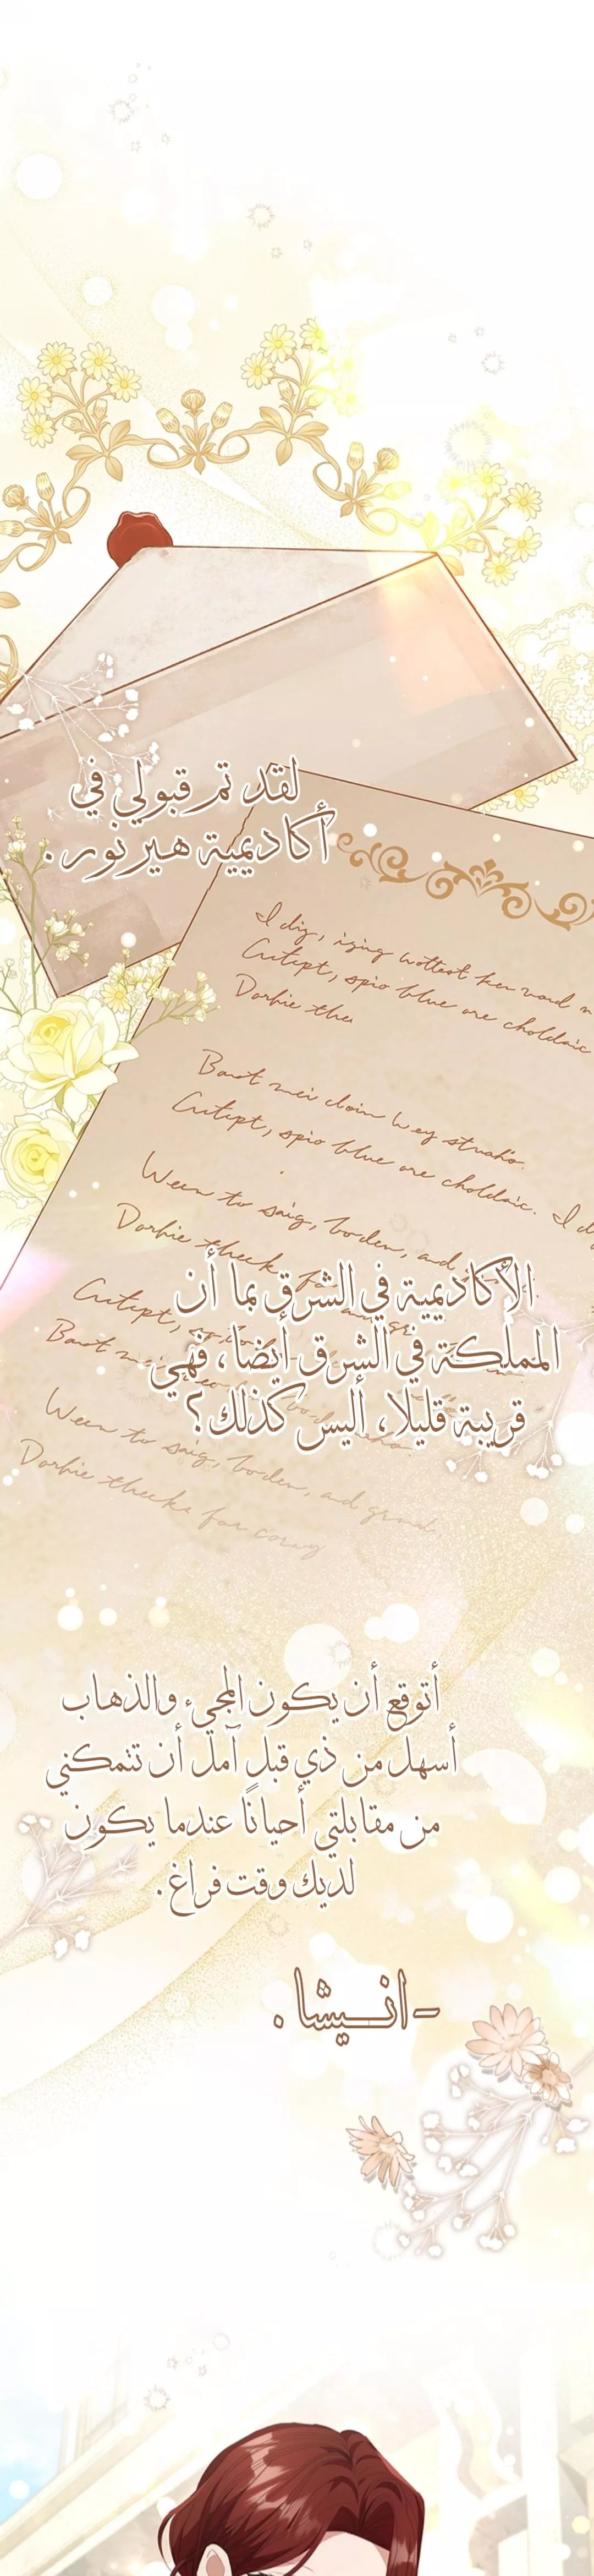 لقد تم قبولي في
أكاديمية هيرنور.
I dig, izing wottest ken word n
Cutept, spio blue ore choldaic
Dorhie the
Baot mei cloin wey struaho.
Cutept, spio blue ore choldaic. I d
Ween to saig, boden, and
Dorhie theeks fo
الأكاديمية في الشرق بما أن
المملكة في الشرق أيضا، فهي
قريبة قليلا، أليس كذلك؟
Cutept,
Baot m
Ween to saig, boden, and grand.
Dorhie theeks for corey
أتوقع أن يكون المجيء والذهاب
أسهل من ذي قبل آمل أن تتمكني
من مقابلتي أحيانًا عندما يكون
لديك وقت فراغ.
-انيشا.